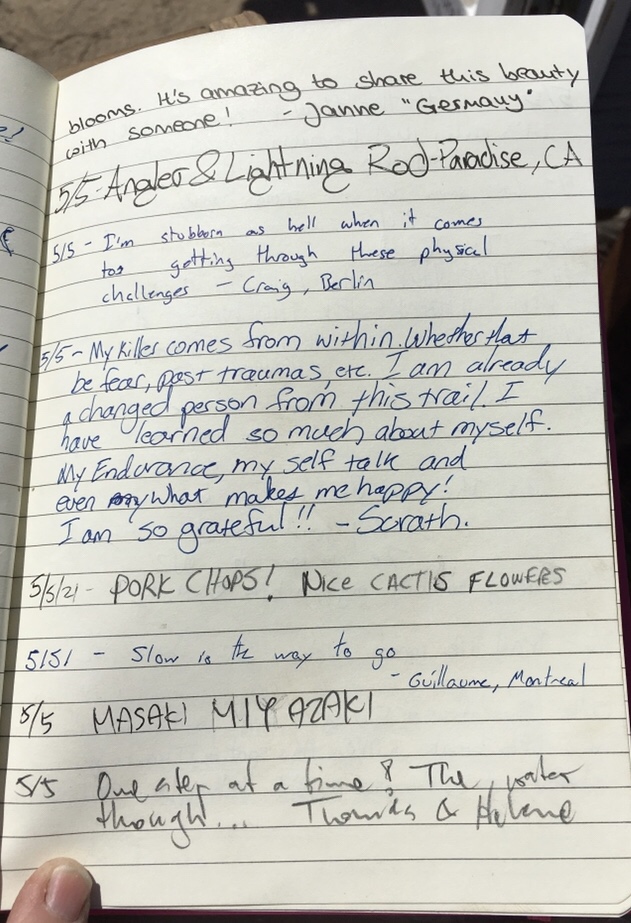 blooms. It's amazing to share this beauty
with someone! - Janne "Germany"
5/5-Angler & Lightning Rod-Paradise, CA
5/5 - I'm stubborn as hell when it comes
too getting through these physical
challenges - Craig, Berlin
5/5-My killer comes from within. Whether that
be fear, past traumas, etc. I am already
a changed person from this trail. I
have learned so much about myself.
My Endurance, my self talk and
even what makes me happy!
I am so grateful!! - Sarath.
5/5/21- PORK CHOPS! NICE CACTIS FLOWERS
5/5/ - Slow is the way to go
- Guillaume, Montreal
5/5 MASAKI MIYAZAKI
5/5 One step at a time! The water
though... Thomas & Helene